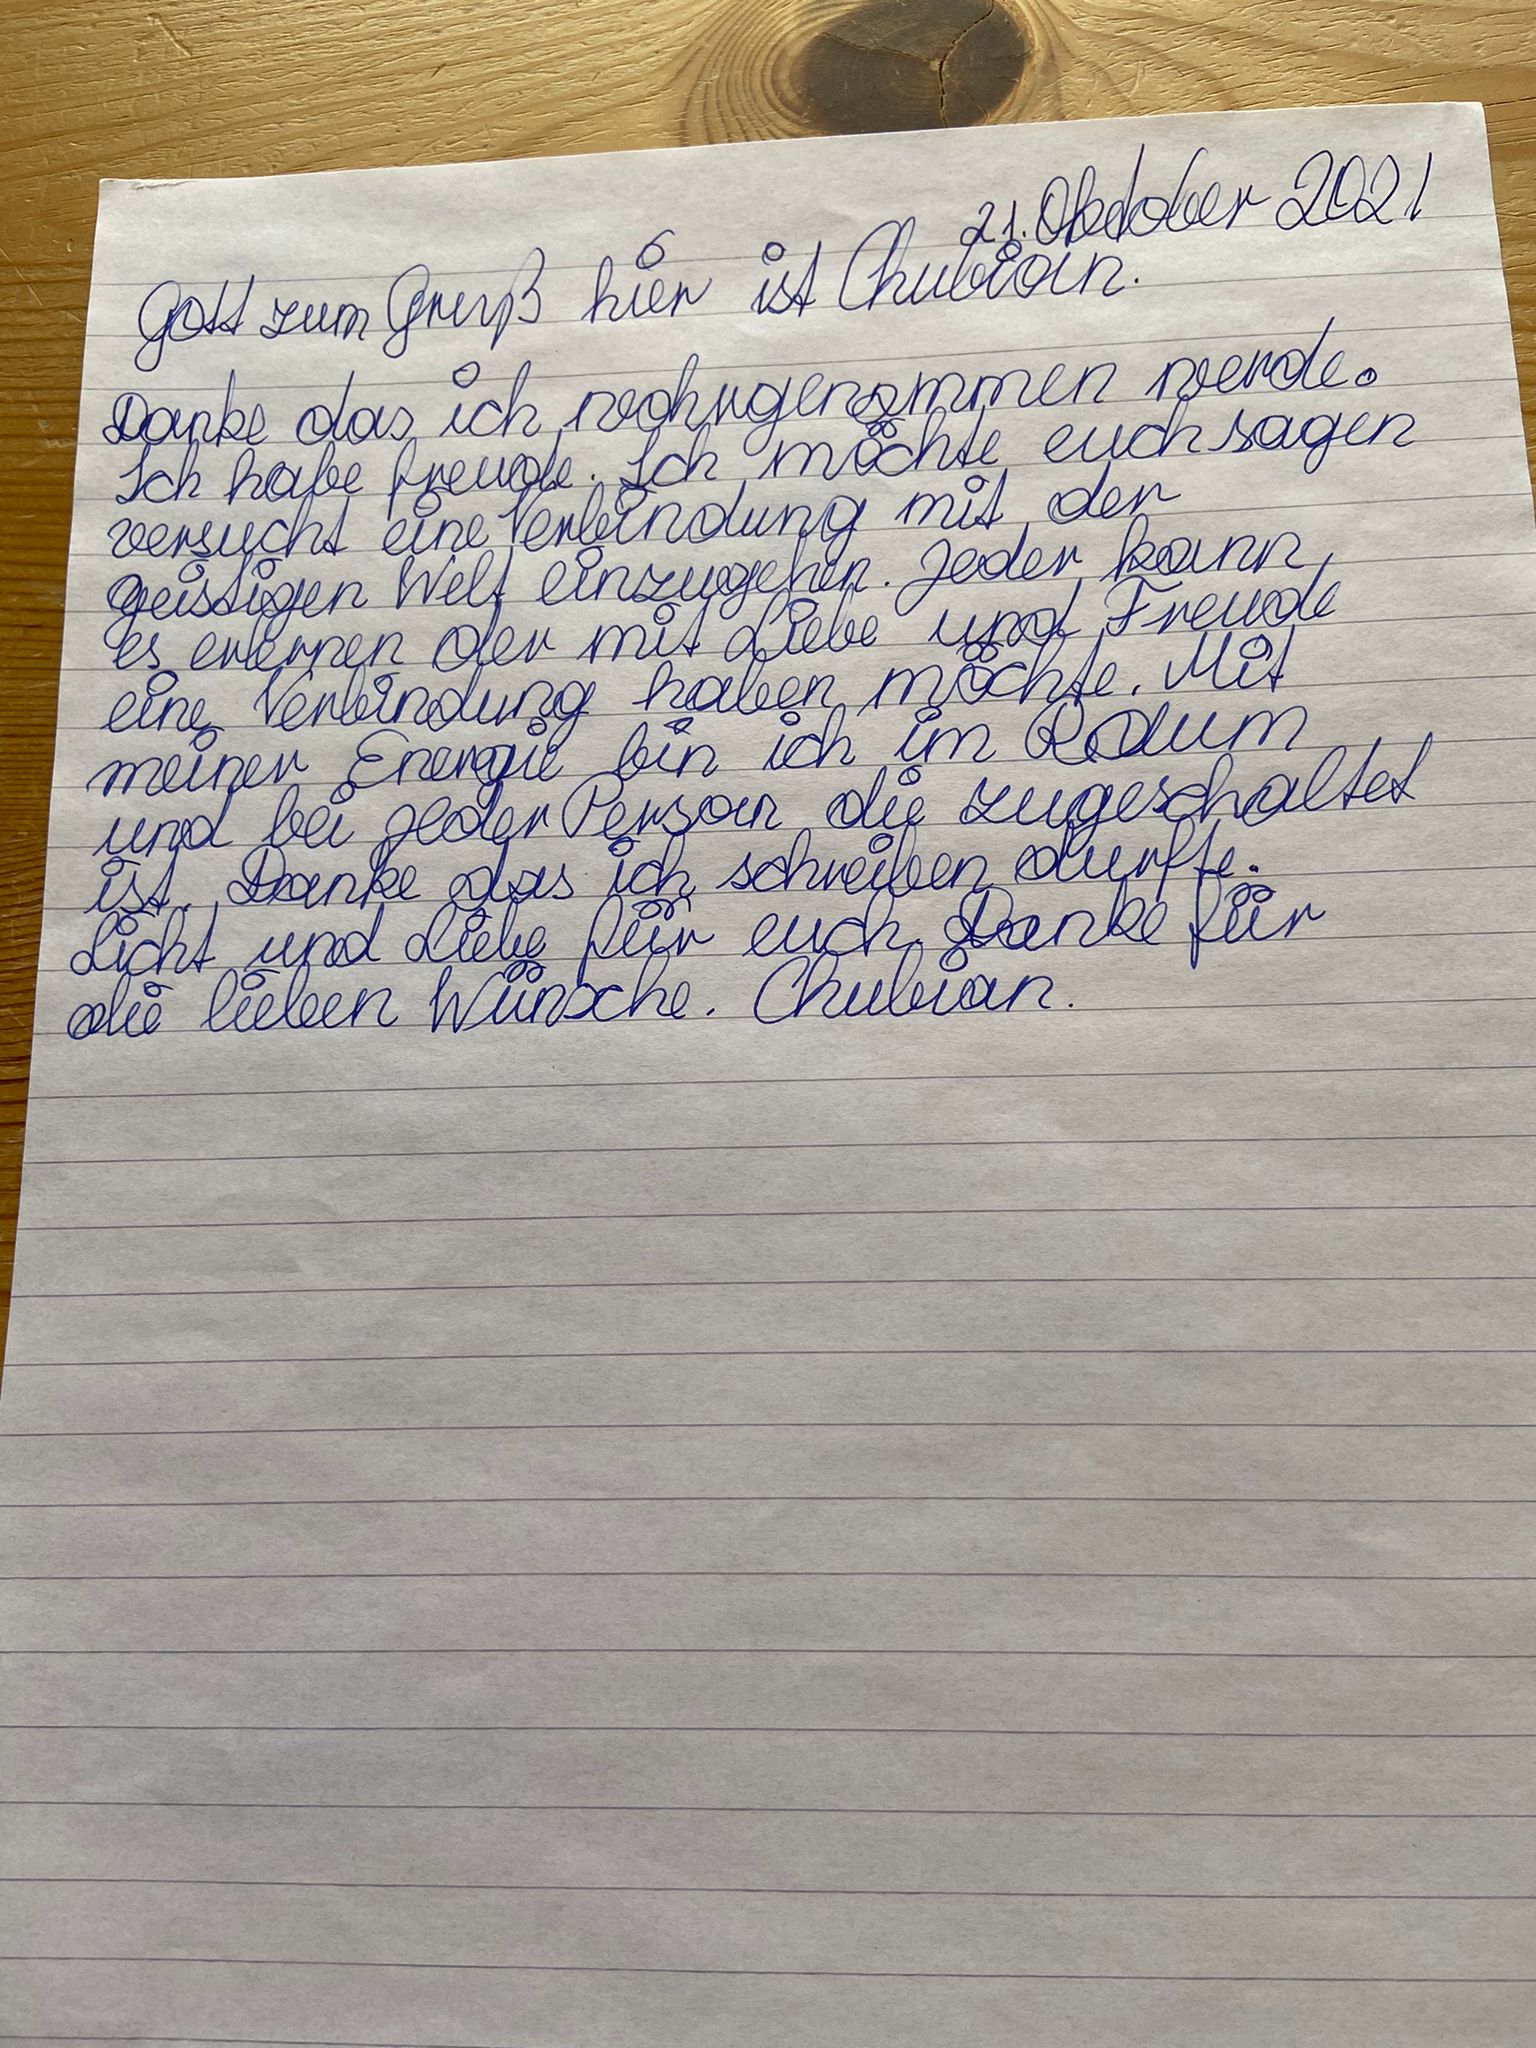 21. Oktober 2021
Gott zum Gruß hier ist Chubian.
Danke das ich wohrgenommen werde.
Ich habe freude. Ich möchte euch sagen
versucht eine Verbindung mit der
geistigen Welt einzugehen. Jeder kann
es erlernen der mit Liebe und Freude
eine Verbindung haben möchte. Mit
meiner Energie bin ich im Raum
und bei jeder Person die zugeschaltet
ist. Danke das ich schreiben durfte.
Licht und Liebe für euch. Danke für
die lieben Wünsche. Chubian.